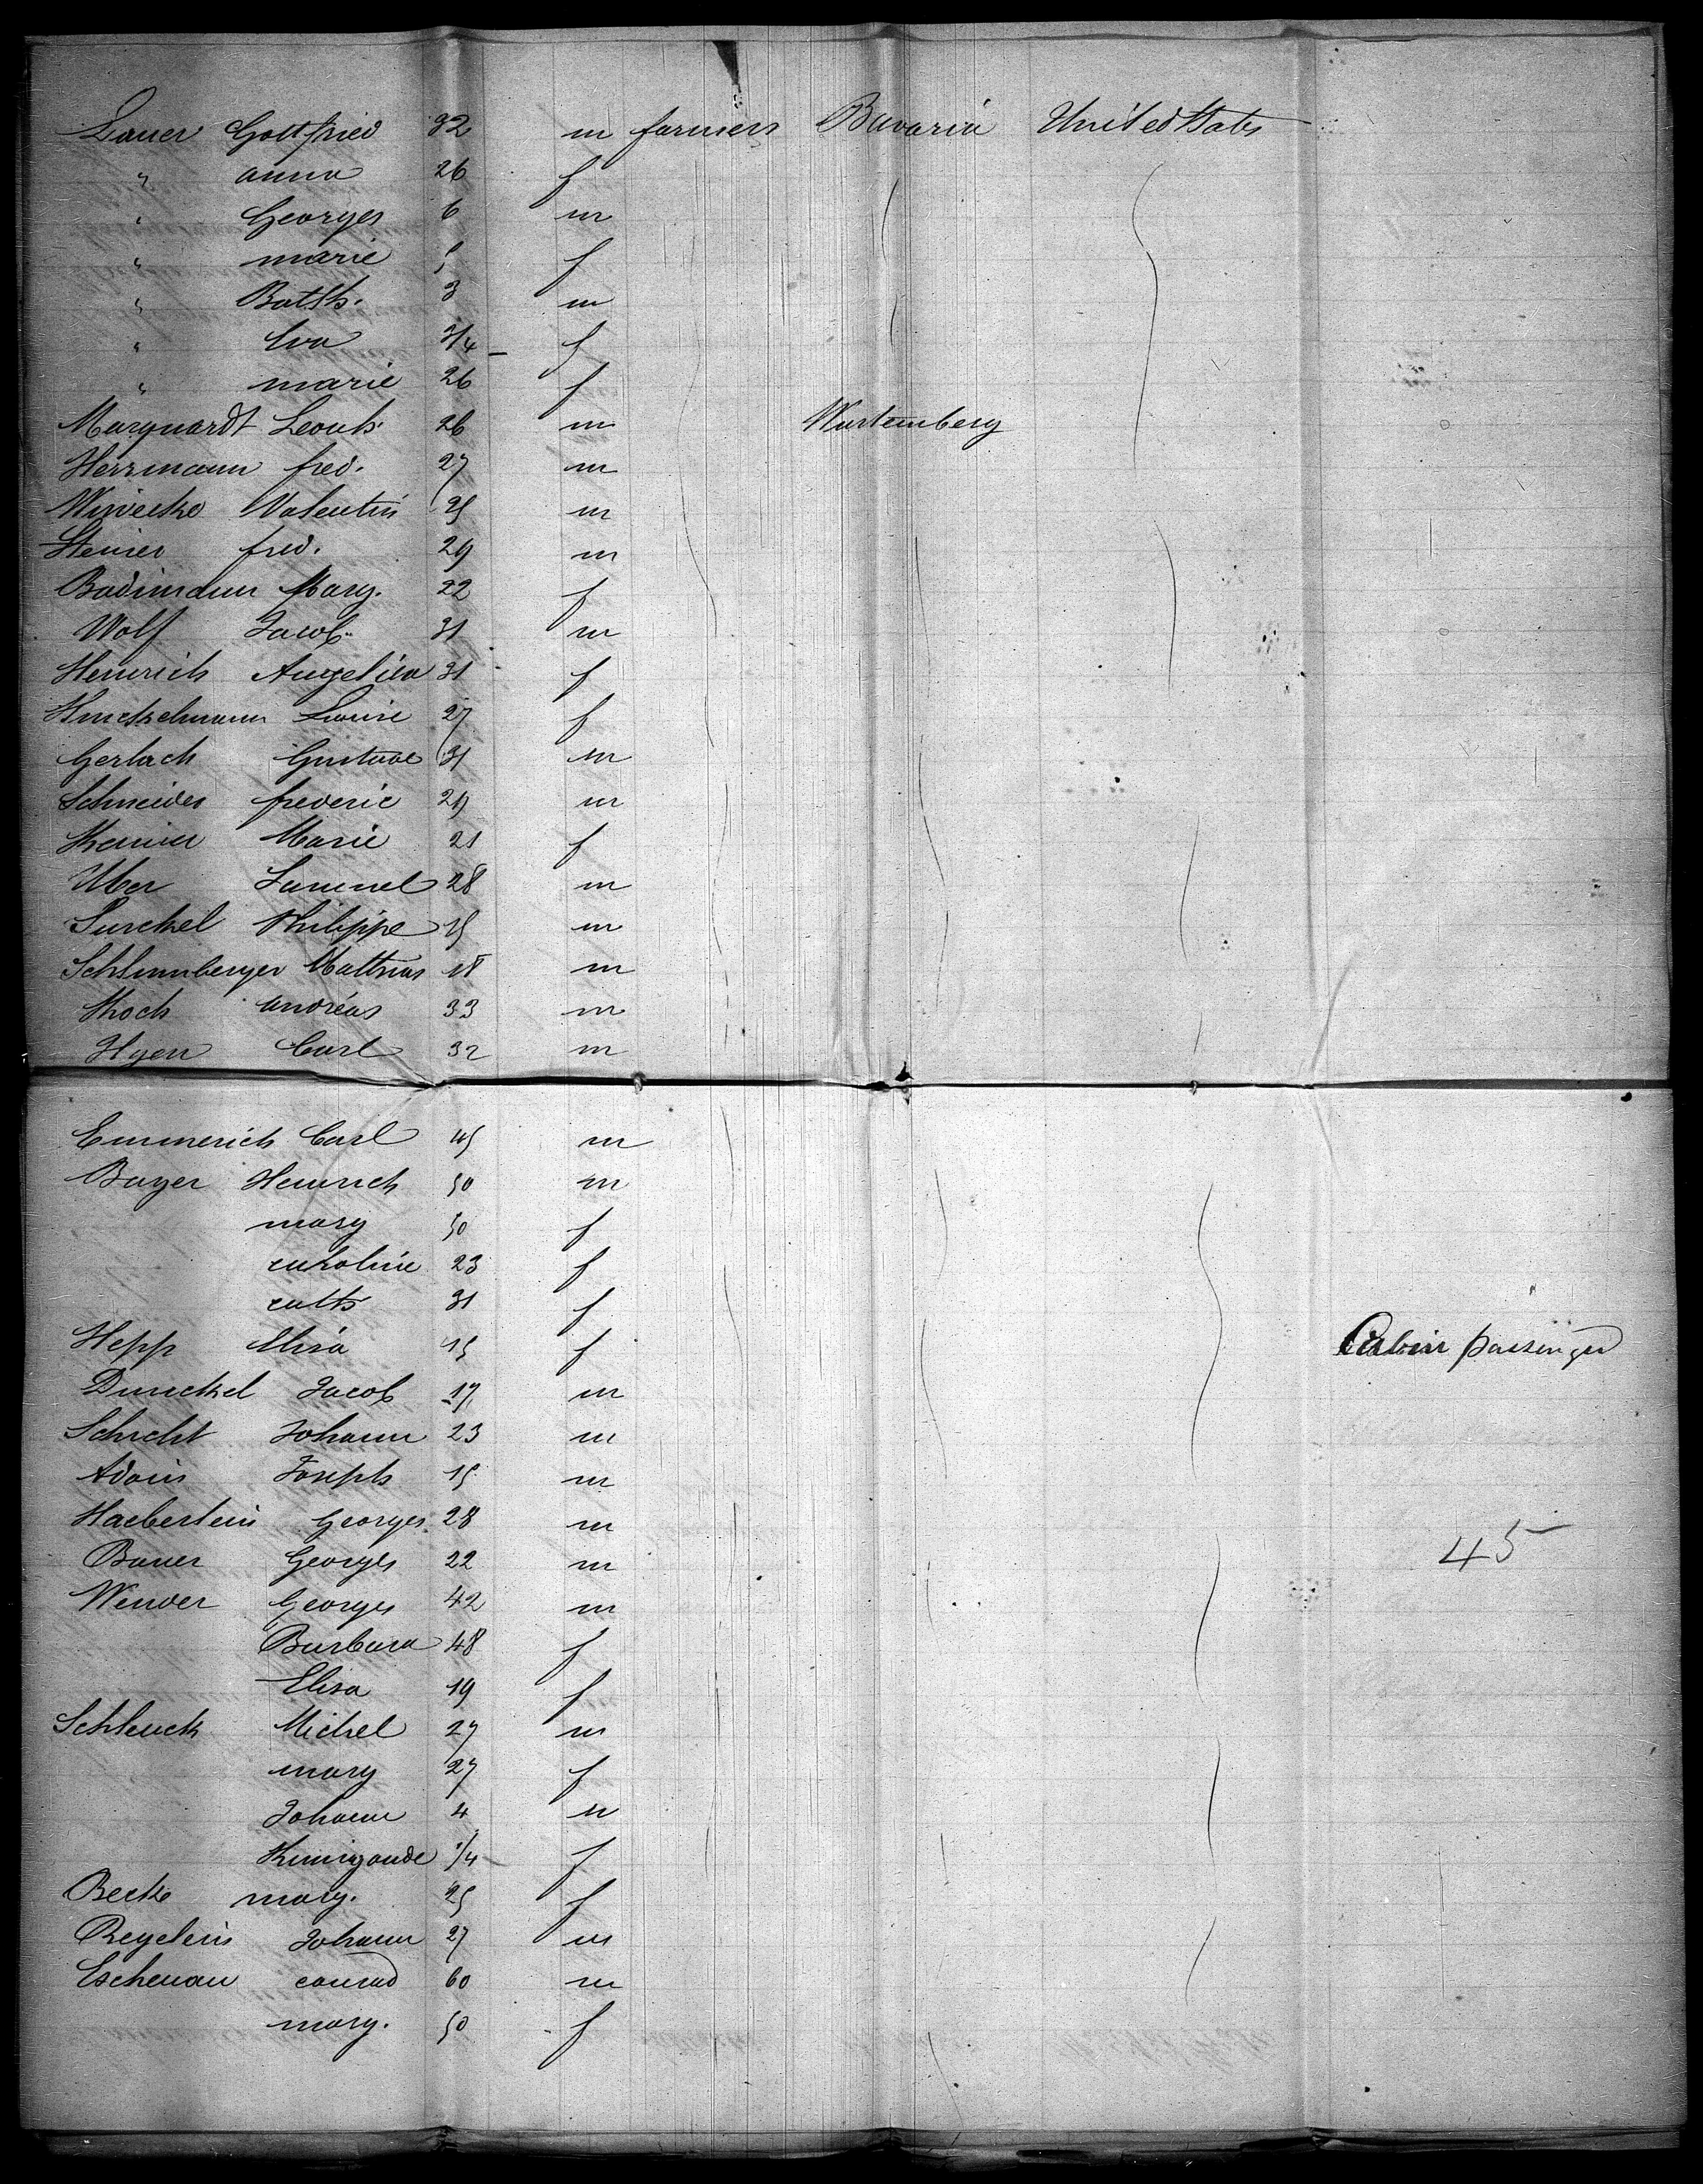 Lauer Gottfried 32 m farmers Bavaria United States
" anna 26 f
" Georges 6 m
" marie 5 f
" Batth. 3 m
" Eva 3/4 f
" marie 26 f
Marquardt Leonh. 26 m Wurtemberg
Herrmann fred. 27 m
Valentin 25 m
Steiner fred. 29 m
Badimann Marg. 22 f
Wolf Jacob 31 m
Heinrich Angelica 31 f
Louise 27 f
Gerlach Gustave 31 m
Schneider frederic 29 m
Marie 21 f
Uber Samuel 28 m
Philippe 15 m
Schlumberger Matthias 18 m
Koch andréas 33 m
Hyen Carl 32 m
Emmerich Carl 45 m
Bayer Heinrich 50 m
mary 50 f
caroline 23 f
cath 31 f
Hepp Elisa 15 f Cabin passenger
Dunckel Jacob 17 m
Schicht Johann 23 m
Joseph 15 m
Haeberlein Georges 28 m 45
Bauer Georges 22 m
Wender Georges 42 m
Barbara 48 f
Elisa 19 f
Schlenck Michel 27 m
mary 27 f
Johann 4 m
Kunigonde 1/4 f
Becke mary. 25 f
Regelein Johann 27 m
Eschenau conrad 60 m
mary. 50 f